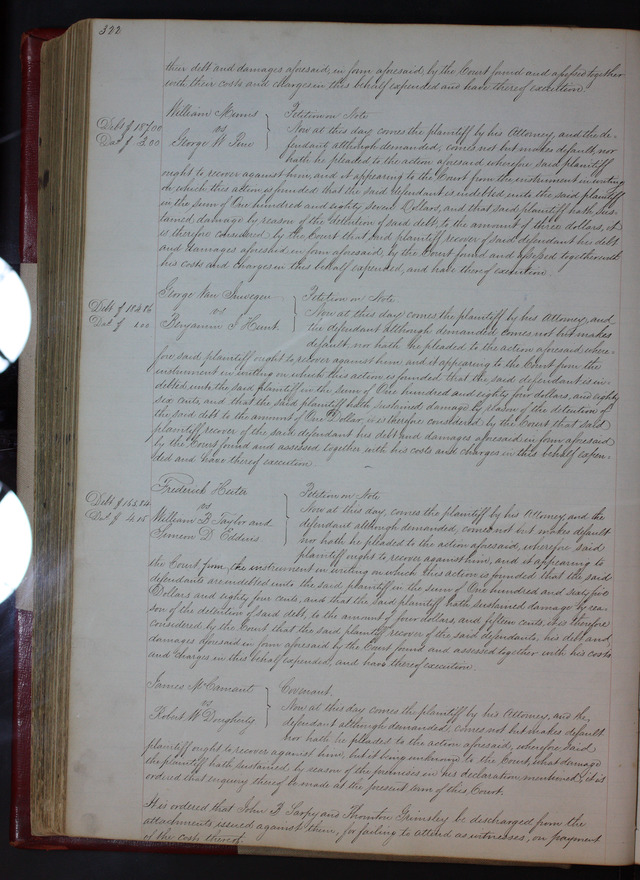 322
their debt and damages aforesaid, in form aforesaid, by the Court found and assessed together
with their costs and charges in this behalf expended and have thereof execution.
William
vs
George W
Petition on Note
Debt $ 187.00
Dam $ 3.00
Now at this day comes the plaintiff by his Attorney, and the de-
fendant although demanded, comes not but makes default, nor
hath he pleaded to the action aforesaid wherefore said plaintiff
ought to recover against him, and it appearing to the Court from the instrument in writing
on which this action is founded that the said defendant is indebted unto the said plaintiff
in the sum of One hundred and eighty seven Dollars, and that said plaintiff hath sus-
tained damage by reason of the detention of said debt, to the amount of three dollars, it
is therefore considered by the Court that said plaintiff recover of said defendant his debt
and damages aforesaid in form aforesaid, by the Court found and assessed together with
his costs and charges in this behalf expended, and have thereof execution.
George Van
vs
Benjamin Hunt
Petition on Note
Debt $ 184.86
Dam $ 1.00
Now at this day comes the plaintiff by his Attorney, and
the defendant although demanded comes not but makes
default, nor hath he pleaded to the action aforesaid where-
fore said plaintiff ought to recover against him, and it appearing to the Court from the
instrument in writing on which this action is founded that the said defendant is in-
debted unto the said plaintiff in the sum of One hundred and eighty four dollars, and eighty
six cents, and that the said plaintiff hath sustained damage by reason of the detention of
the said debt to the amount of One Dollar, it is therefore considered by the Court that said
plaintiff recover of the said defendant his debt and damages aforesaid in form aforesaid
by the Court found and assessed, together with his costs and charges in this behalf expen-
ded and have thereof execution.
Frederick
vs
William B Taylor and
D
Petition on Note
Dam $ 4.15
Now at this day, comes the plaintiff by his Attorney, and the
defendant although demanded, comes not but makes default
nor hath he pleaded to the action aforesaid, wherefore said
plaintiff ought to recover against him, and it appearing to
the Court from the instrument in writing on which this action is founded that the said
defendants are indebted unto the said plaintiff in the sum of One hundred and sixty five
Dollars and eighty four cents, and that the said plaintiff hath sustained damage by rea-
son of the detention of said debt, to the amount of four dollars, and fifteen cents, it is therefore
considered by the Court, that the said plaintiff recover of the said defendants, his debt and
damages aforesaid in form aforesaid by the Court found and assessed together with his costs
and charges in this behalf expended, and have thereof execution.
James McCamant
vs
Robert W Dougherty
Covenant.
Now at this day comes the plaintiff by his Attorney, and the
defendant although demanded, comes not but makes default
nor hath he pleaded to the action aforesaid, wherefore said
plaintiff ought to recover against him, but it being unknown to the Court, what damage
the plaintiff hath sustained, by reason of the premises in his declaration mentioned, it is
ordered that enquiry thereof be made at the present term of this Court.
It is ordered that John B Sarpy and Thornton Grimsley be discharged from the
attachments issued against them, for failing to attend as witnesses, on payment
of the costs thereof.